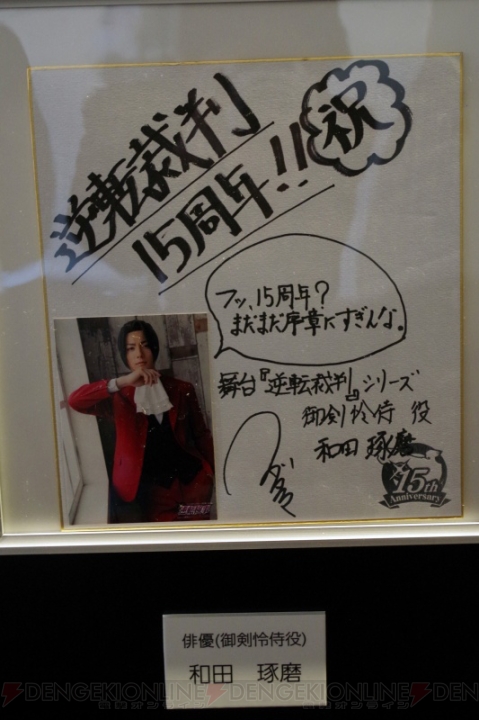 逆転裁判
15周年!!
祝
フッ、15周年?
まだまだ序章にすぎんな。
舞台『逆転裁判』シリーズ
御剣怜侍 役
和田 琢磨
15th
Anniversary
逆転裁判
俳優(御剣怜侍役)
和田 琢磨
DENGEKIONLINE DENGEKIONLINE
電撃オンライン 電撃オンライン